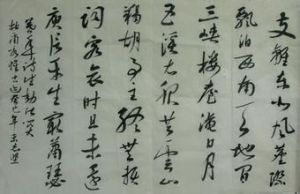 支離東北風塵際
飄泊西南天地間
三峽樓臺淹日月
五溪衣服共雲山
羯胡事主終無賴
詞客哀時且未還
庾信平生最蕭瑟
暮年詩賦動江關
杜甫詠懷古跡癸巳年